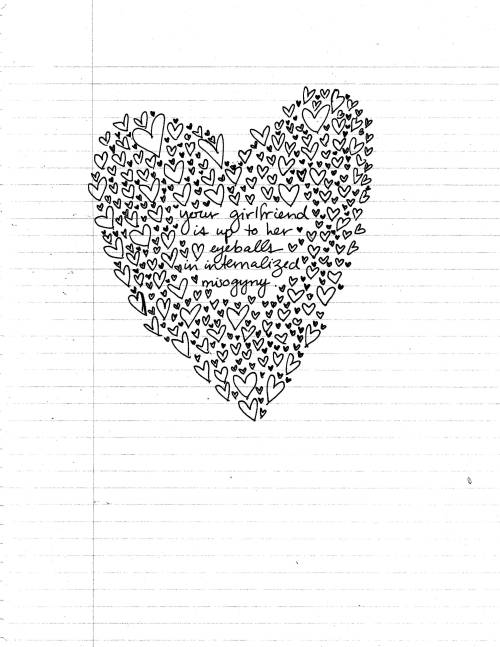 your girlfriend
is up to her
eyeballs
in internalized
misogyny.